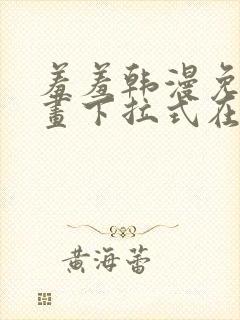 羞羞韩漫免
畫下拉式在
黄海蕾